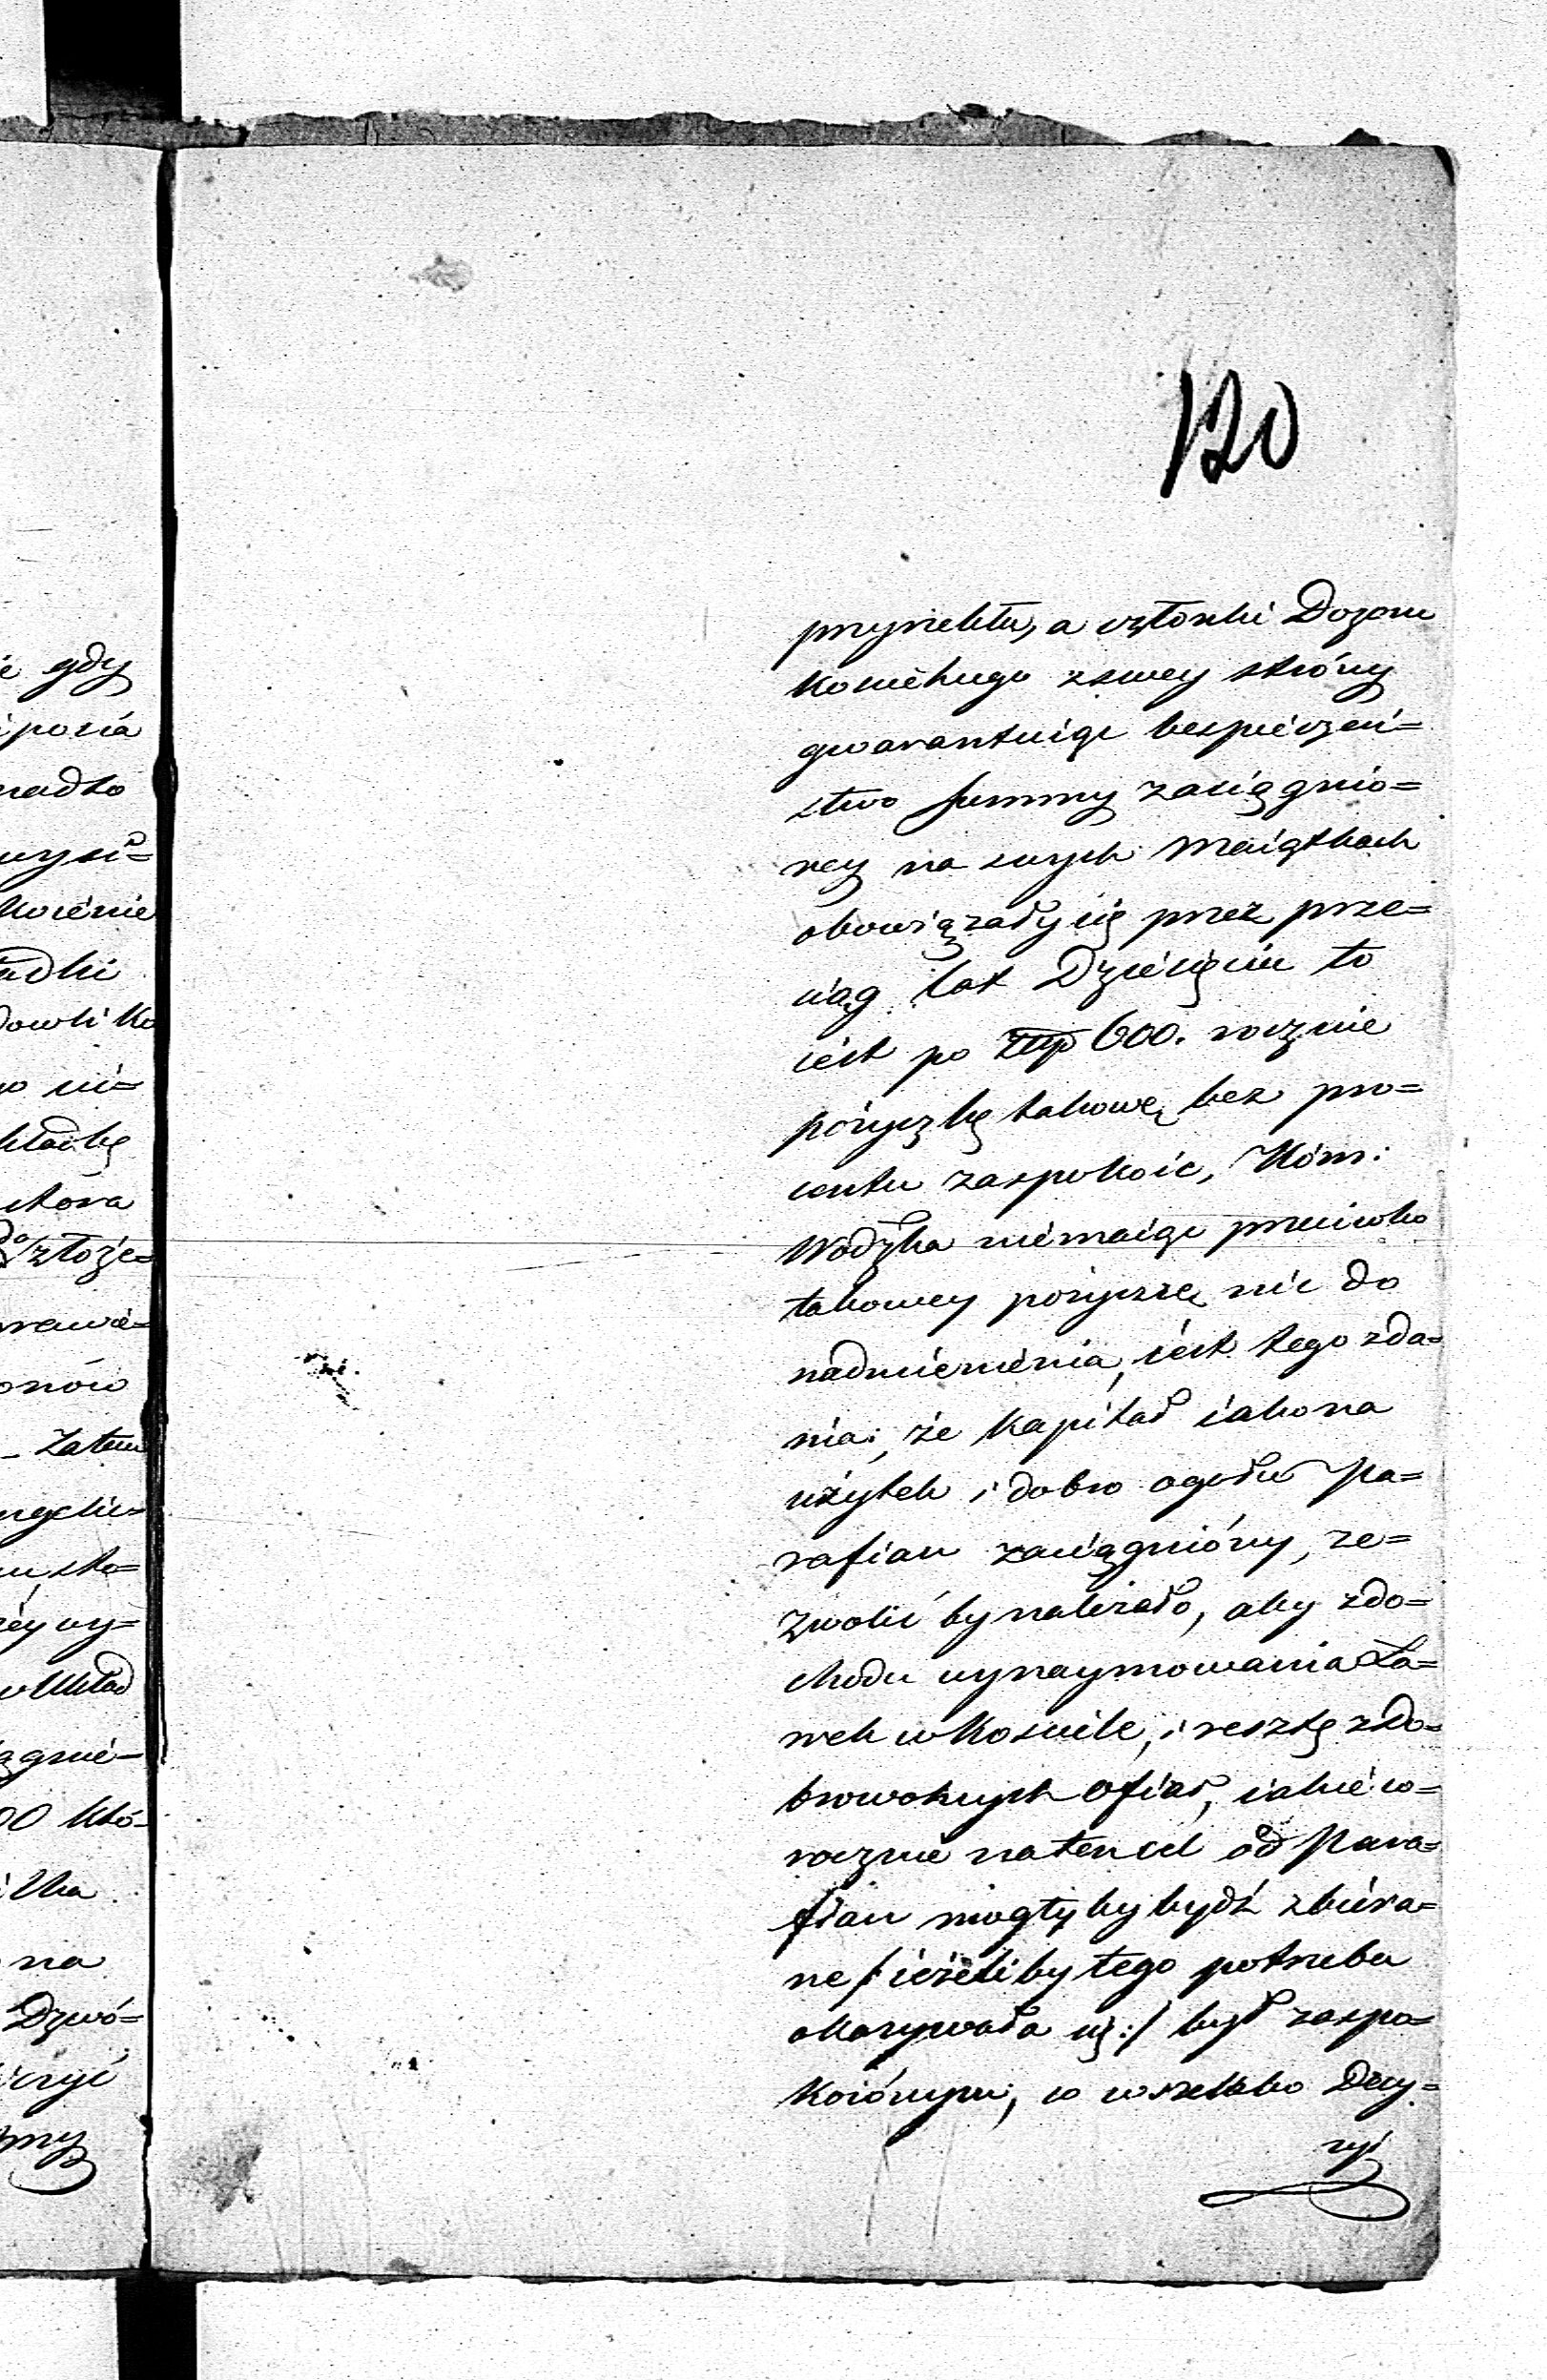 120
przyrzekła, a członki Dozoru
Kościelnego zswey stróny
gwarantuiąc bespieczeń=
stwo Summy zaciągnio=
ney na swych Maiątkach
obowiązały się przez prze=
ciąg lat Dziesięciu to
iest po Złłp 600. rocznie
pożyczkę takowę bez pro=
centu zaspokoić, Kóm:
Wodzka niemaiąc przeciwko
takowey pożyczce nic do
nadmienienia, iest tego zda=
nia; że Kapitał iako na
użytek i dobro ogułu Pa=
rafian zaciągnióny, ze=
zwolić by należało, aby zdo=
chodu wynaymowania Ła=
wek w Kościele, i resztę zdo=
browolnych Ofiar, iakie co=
rocznie naten cel od Para=
fian mogły by bydź zbiera=
ne /: ieżeli by tego potrzeba
okazywała się :/ był zaspo=
koiónym; co wszelako Decy=
zyi
ie gdy
nadto
wysi=
adki
kładkę
która
złoże=
onów
_ Zatem
wy=
Układ
00 któ=
na
Dzwó=